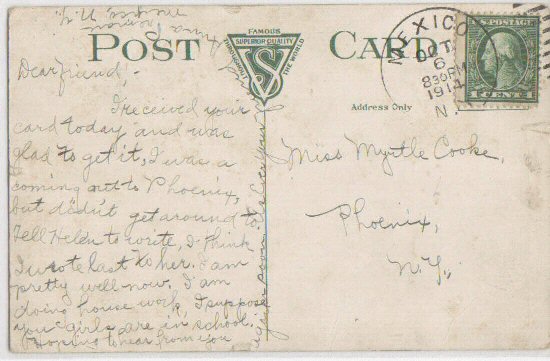 POST CARD
FAMOUS
SUPERIOR QUALITY
THROUGHOUT THE WORLD
S
Address Only
MEXICO
OCT
6
830PM
1914
N.Y.
U.S. POSTAGE
1 CENT 1
Dear friend,-
I received your
card today and was
glad to get it, I was a
coming out to Phoenix,
but didn't get around to
Tell Helen to write, I think
I wrote last to her. I am
pretty well now. I am
doing house work, I suppose
you girls are in school.
Hoping to hear from you
again soon
Anna
Mexico, N.Y.
Miss Myrtle Cooke,
Phoenix,
N.Y.,